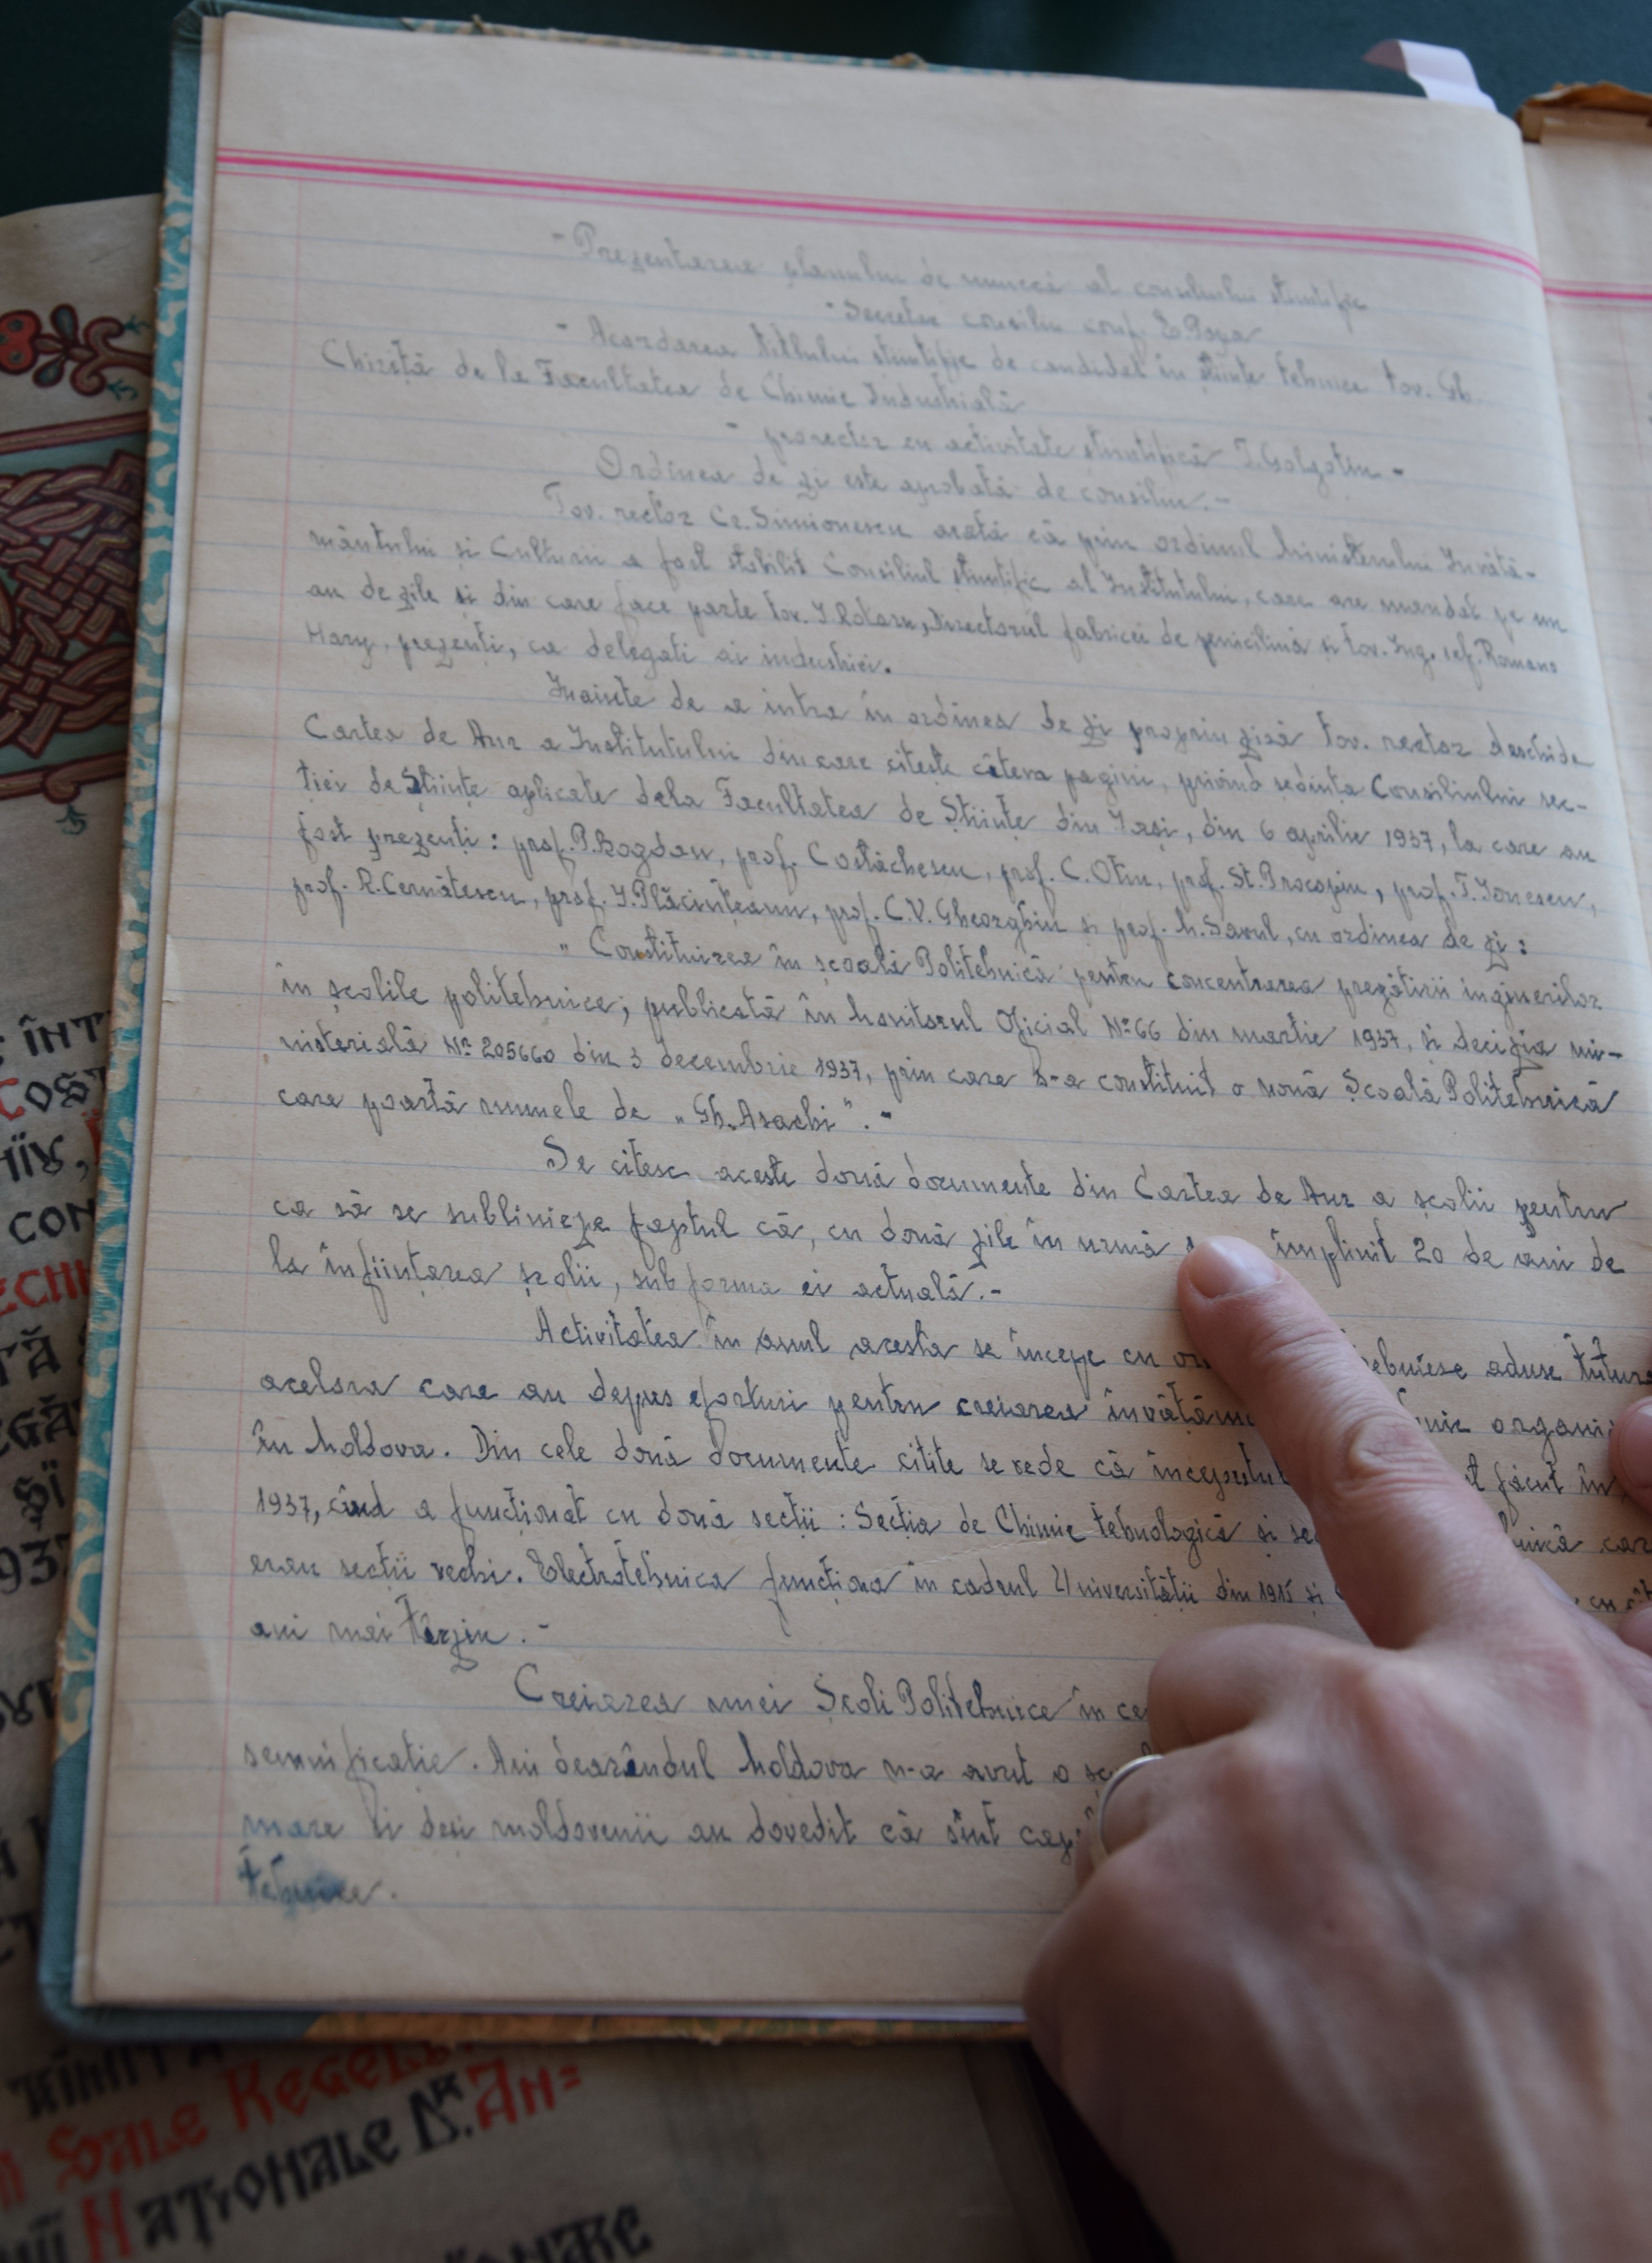 - Prezentarea planului de muncă al consiliului științific
- Secretar consiliu conf. E. Popa
- Acordarea titlului stiintific de candidat în științe tehnice tov. Gh.
Chiriță de la Facultatea de Chimie Industrială
- prorector cu activitate stiintifică
Ordinea de zi este aprobată de consiliu.-
Tov. rector Cr. Simionescu arată că prin ordinul Ministerului Invătă-
mântului si Culturii a fost stabilit Consiliul stiintific al Institutului, care are mandat pe un
an de zile si din care face parte tov. I. Rotaru, Directorul fabricei de penicilină si tov. Ing. sef. Romano
Hary, prezenți, ca delegati ai industriei.
Inainte de a intra în ordinea de zi propriu zisă tov. rector deschide
Cartea de Aur a Institutului din care citește câteva pagini, privind ședința Consiliului sec-
ției de Științe aplicate dela Facultatea de Științe din Iași, din 6 aprilie 1937, la care au
fost prezenți: prof. P. Bogdan, prof. Costăchescu, prof. C. Otin, prof. St. Procopiu, prof. T. Ionescu,
prof. R. Cernătescu, prof. I. Plăcințeanu, prof. C.V. Gheorghiu si prof. M. Savul, cu ordinea de zi:
„ Constituirea în școală Politehnică pentru concentrarea pregătirii inginerilor
în școlile politehnice; publicată în Monitorul Oficial Nº 66 din martie 1937, și decizia mi-
nisterială Nº 205660 din 3 decembrie 1937, prin care s-a constituit o nouă Școală Politehnică
care poartă numele de „Gh. Asachi". -
Se citesc aceste două documente din Cartea de Aur a școlii pentru
ca să se sublinieze faptul că, cu două zile în urmă împlinit 20 de ani de
la înființarea școlii, sub forma ei actuală.-
Activitatea în anul acesta se începe cu aduse
acelora care au depus eforturi pentru creiarea
în Moldova. Din cele două documente citite se vede că începutul făcut în
1937, când a funcționat cu două secții: Secția de Chimie tehnologică și
erau secții vechi. Electrotehnica funcționa în cadrul Universității din
ani mai târziu.-
Creiarea unei Școli Politehnice în
semnificatie. Ani dearândul Moldova n-a avut o
mare și deși moldovenii au dovedit că sînt
tehnice.
ÎNT
COST
CON
ECHI
937
SALE REGELE
NAȚIONALE DR. AN=